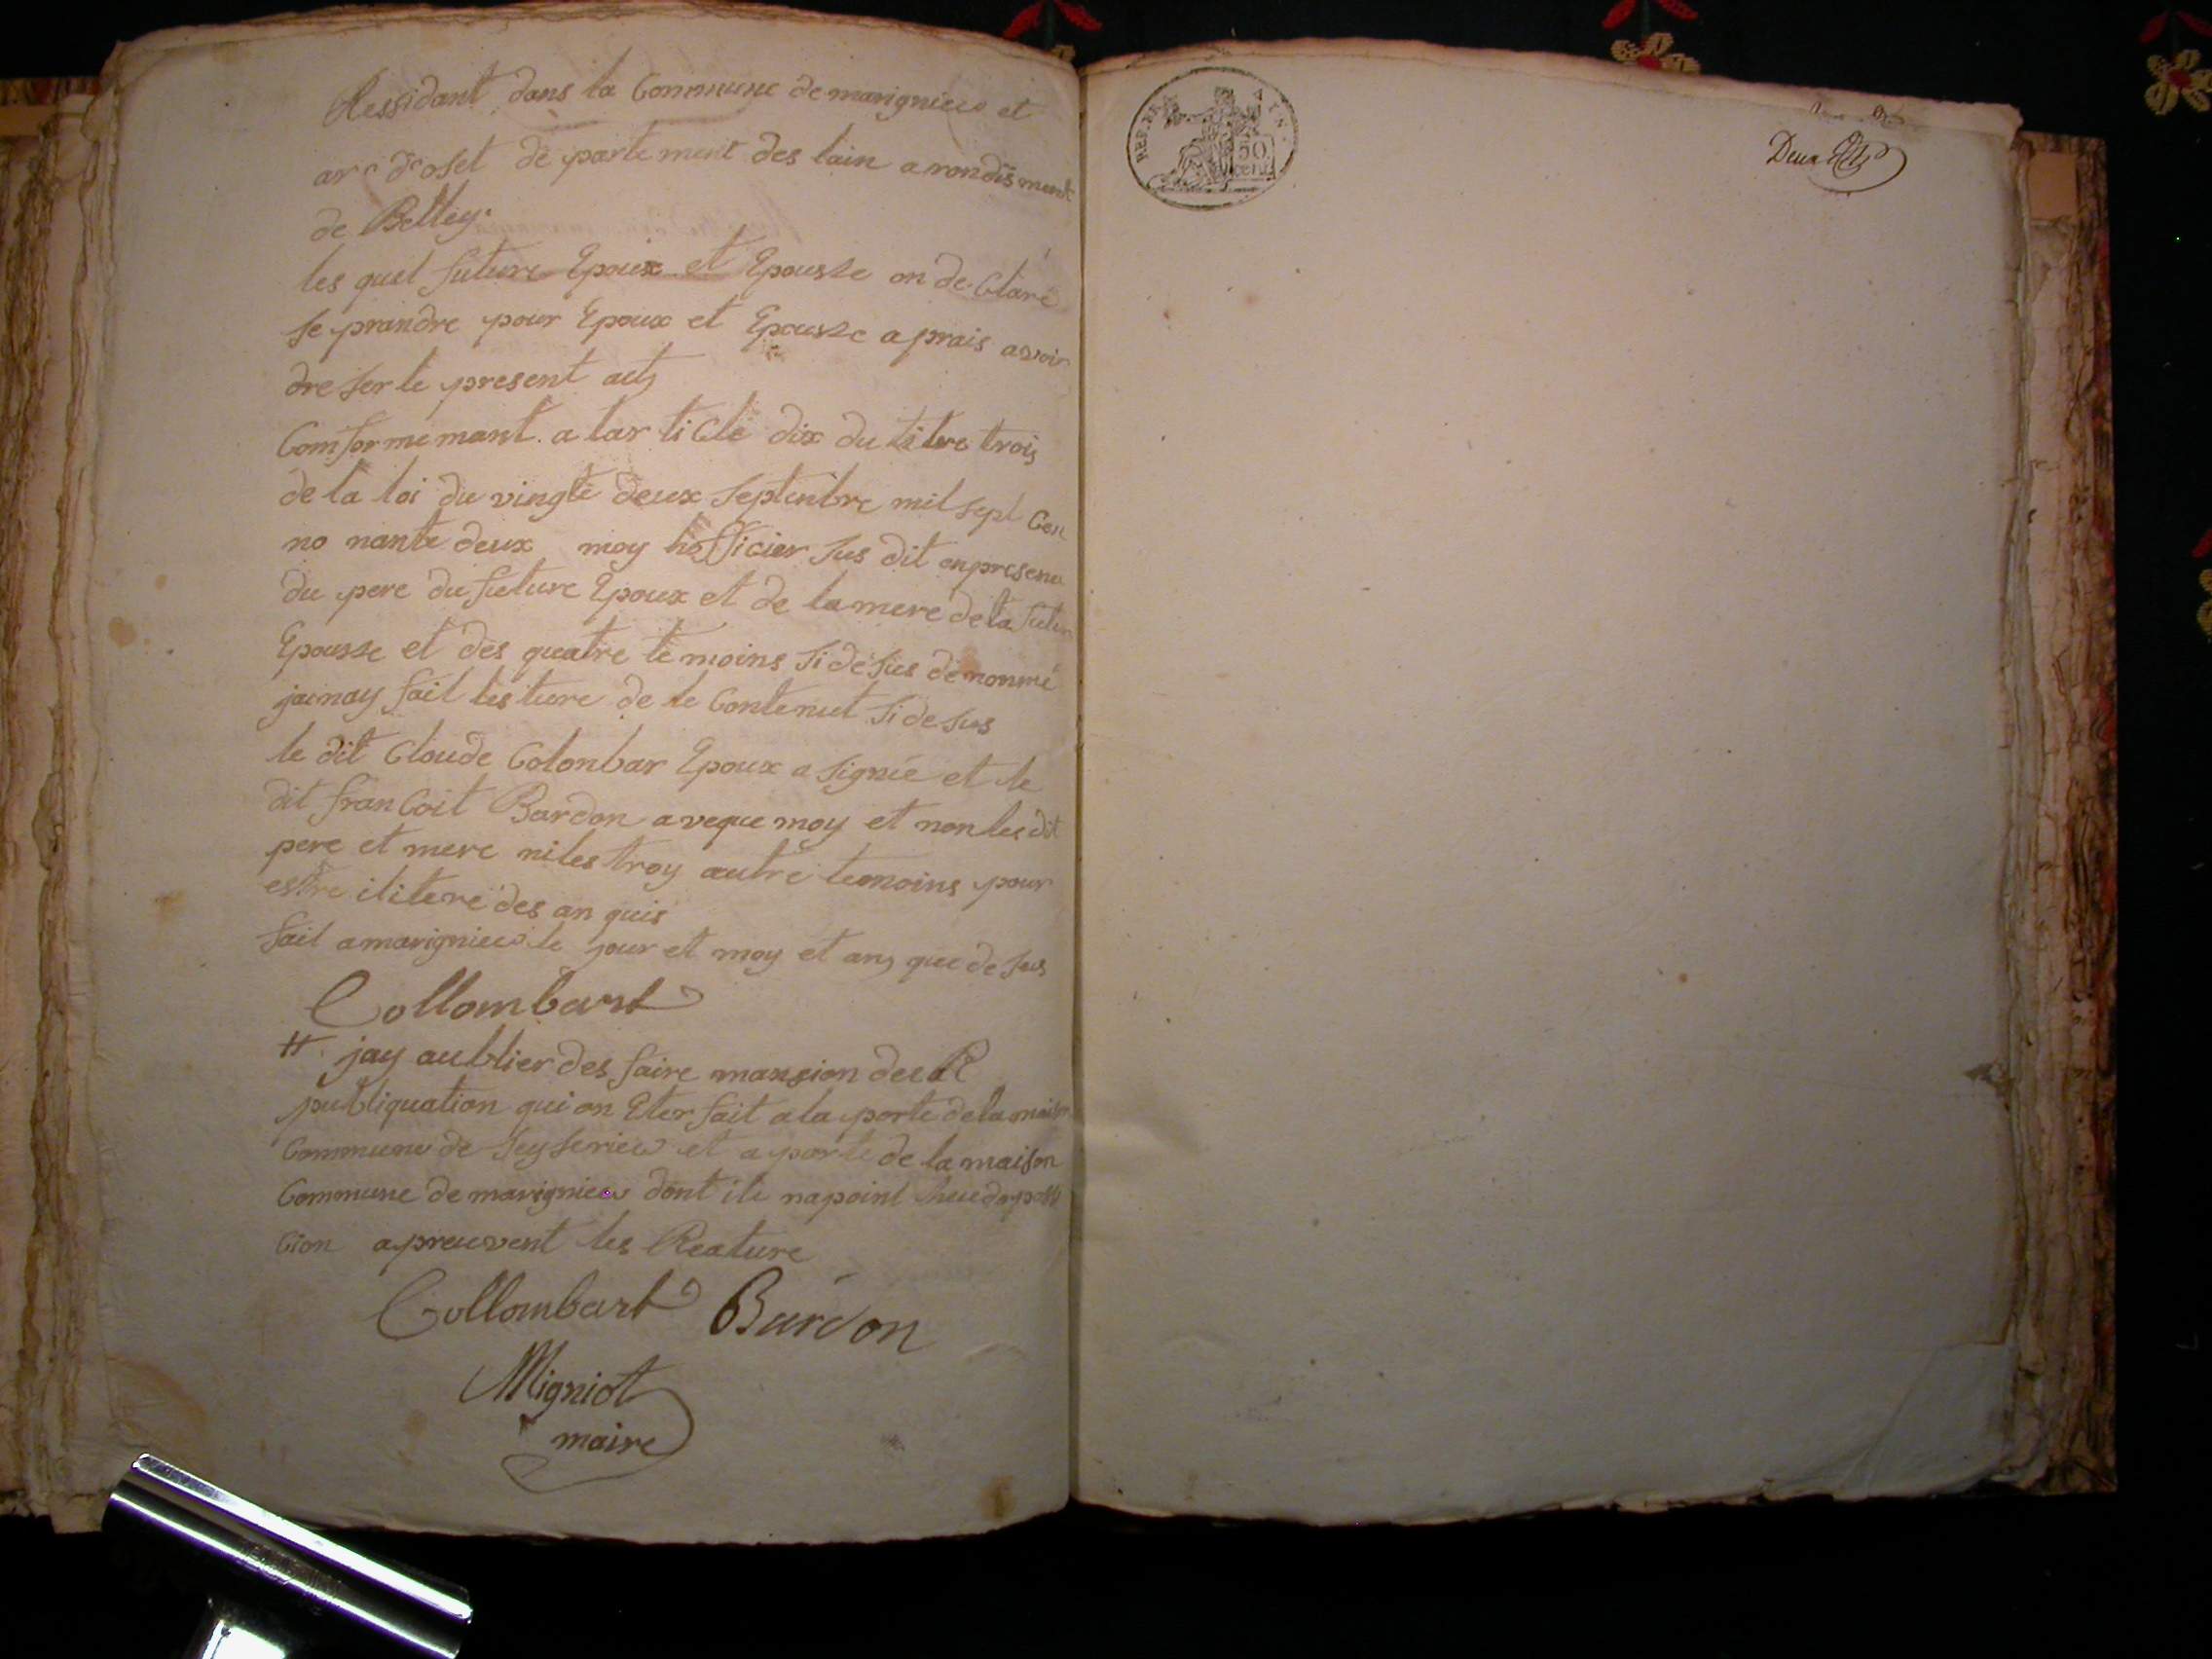 Ressidant dans la Commune de marignieu et
de partement des lain a rondisment
de Belley.
les quel future Epoux et Epousse on de Claré
se prandre pour Epoux et Epousse a prais avoir
dreser le present act
Comformemant. a lar ticle dix du titre trois
de la loi du vingte deux septenbre mil sept Cen
no nante deux moy hofficier sus dit en presence
du pere du future Epoux et de la mere de la futur
Epousse et des quatre te moins si de sus de nommé
jainay fait les ture de le Contenut si de sus
le dit Cloude Colonbar Epoux a signié et le
dit franCoit Bardon aveque moy et non les dit
pere et mere ni les troy autre temoins pour
estre ilitere des an quis
fait a marignieu le jour et moy et an que de sus
Collombart
jay aublier des faire mansion
publiquation qui on Eter fait a la porte de la maison
Commune de seyserieu et a porte de la maison
Commune de marignieu dont ile napoint
Cion apreuvent les Reature
Collombart Bardon
Migniot
maire
REP. FRA
50
cent
Deux